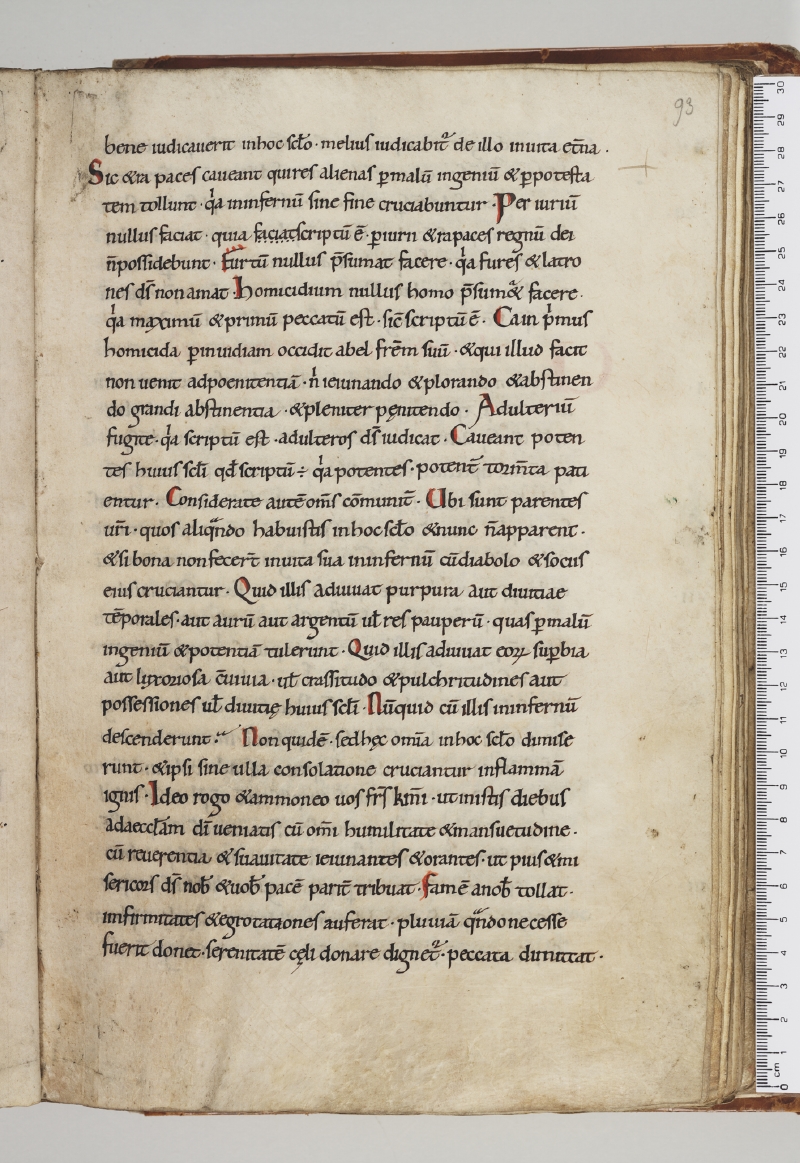 93
bene iudicauerit inhoc sc̄lo · melius iudicabit᷑ de illo inuita et̄na .
Sic &ra paces caueant quires alienas p̱malū ingeniū &p̱potesta
tem tollunt · qͥa ininfernū sine fine cruciabuntur · Per iuriū
nullus faciat · quia faciatscriptū ē · p̱iuri &rapaces regnū dei
n̄possidebunt · Furtū nullus p̄sumat facere · qͥa fures &latro
nes d̄s non amat · Homicidium nullus homo p̄sum& facere ·
qͥa maximū &primū peccatū est · sic̄ scriptū ē · Cain pͥmus
homicida p̱inuidiam occidit abel fr̄em suū · &qui illud facit
non uenit adpoenitentiā · nͥ ieiunando &plorando &abstinen
do grandi abstinentia · &pleniter pęnitendo · Adulteriū
fugite · qͥa scriptū est · adulteros d̄s iudicat · Caueant poten
tes huius sc̄li qd̄ scriptū ÷ qͥa potentes · potent᷑ torm̄ta pati
entur · Considerate autē om̄s cōmunit᷑ · Ubi sunt parentes
ur̄i · quos aliqᷓndo habuistis inhoc sc̄lo &nunc n̄apparent ·
&si bona non fecer̄t inuita sua ininfernū cū diabolo &sociis
eius cruciantur · Quid illis adiuuat purpura aut diuitiae
tēporales · aut aurū aut argentū ul̄ res pauperū · quas p̱malū
ingeniū &potentiā tulerunt · Quid illis adiuuat eoꝝ sup̱bia
aut lyxoriosa c̄uiuia · ul̄ crassitudo &pulchritudines aut
possessiones ul̄ diuitię huius sc̄li · Nūquid cū illis ininfernū
descenderunt : Non quidē · sed hęc om̄ia inhoc sc̄lo dimise
runt · &ipsi sine ulla consolatione cruciantur inflammā
ignis · Ideo rogo &ammoneo uos fr̄s km̄i · ut inistis diebus
adaeccl̄am dī ueniatis cū om̄i humilitate &mansuetudine ·
cū reuerentia &suauitate ieiunantes &orantes · ut pius &mi
sericors d̄s nob̄ &uob̄ pacē parit᷑ tribuat · Famē anob̄ tollat ·
infirmitates &egrotationes auferat · pluuiā qᷓndo necesse
fuerit donet · serenitatē cęli donare dignet᷑ · peccata dimittat ·